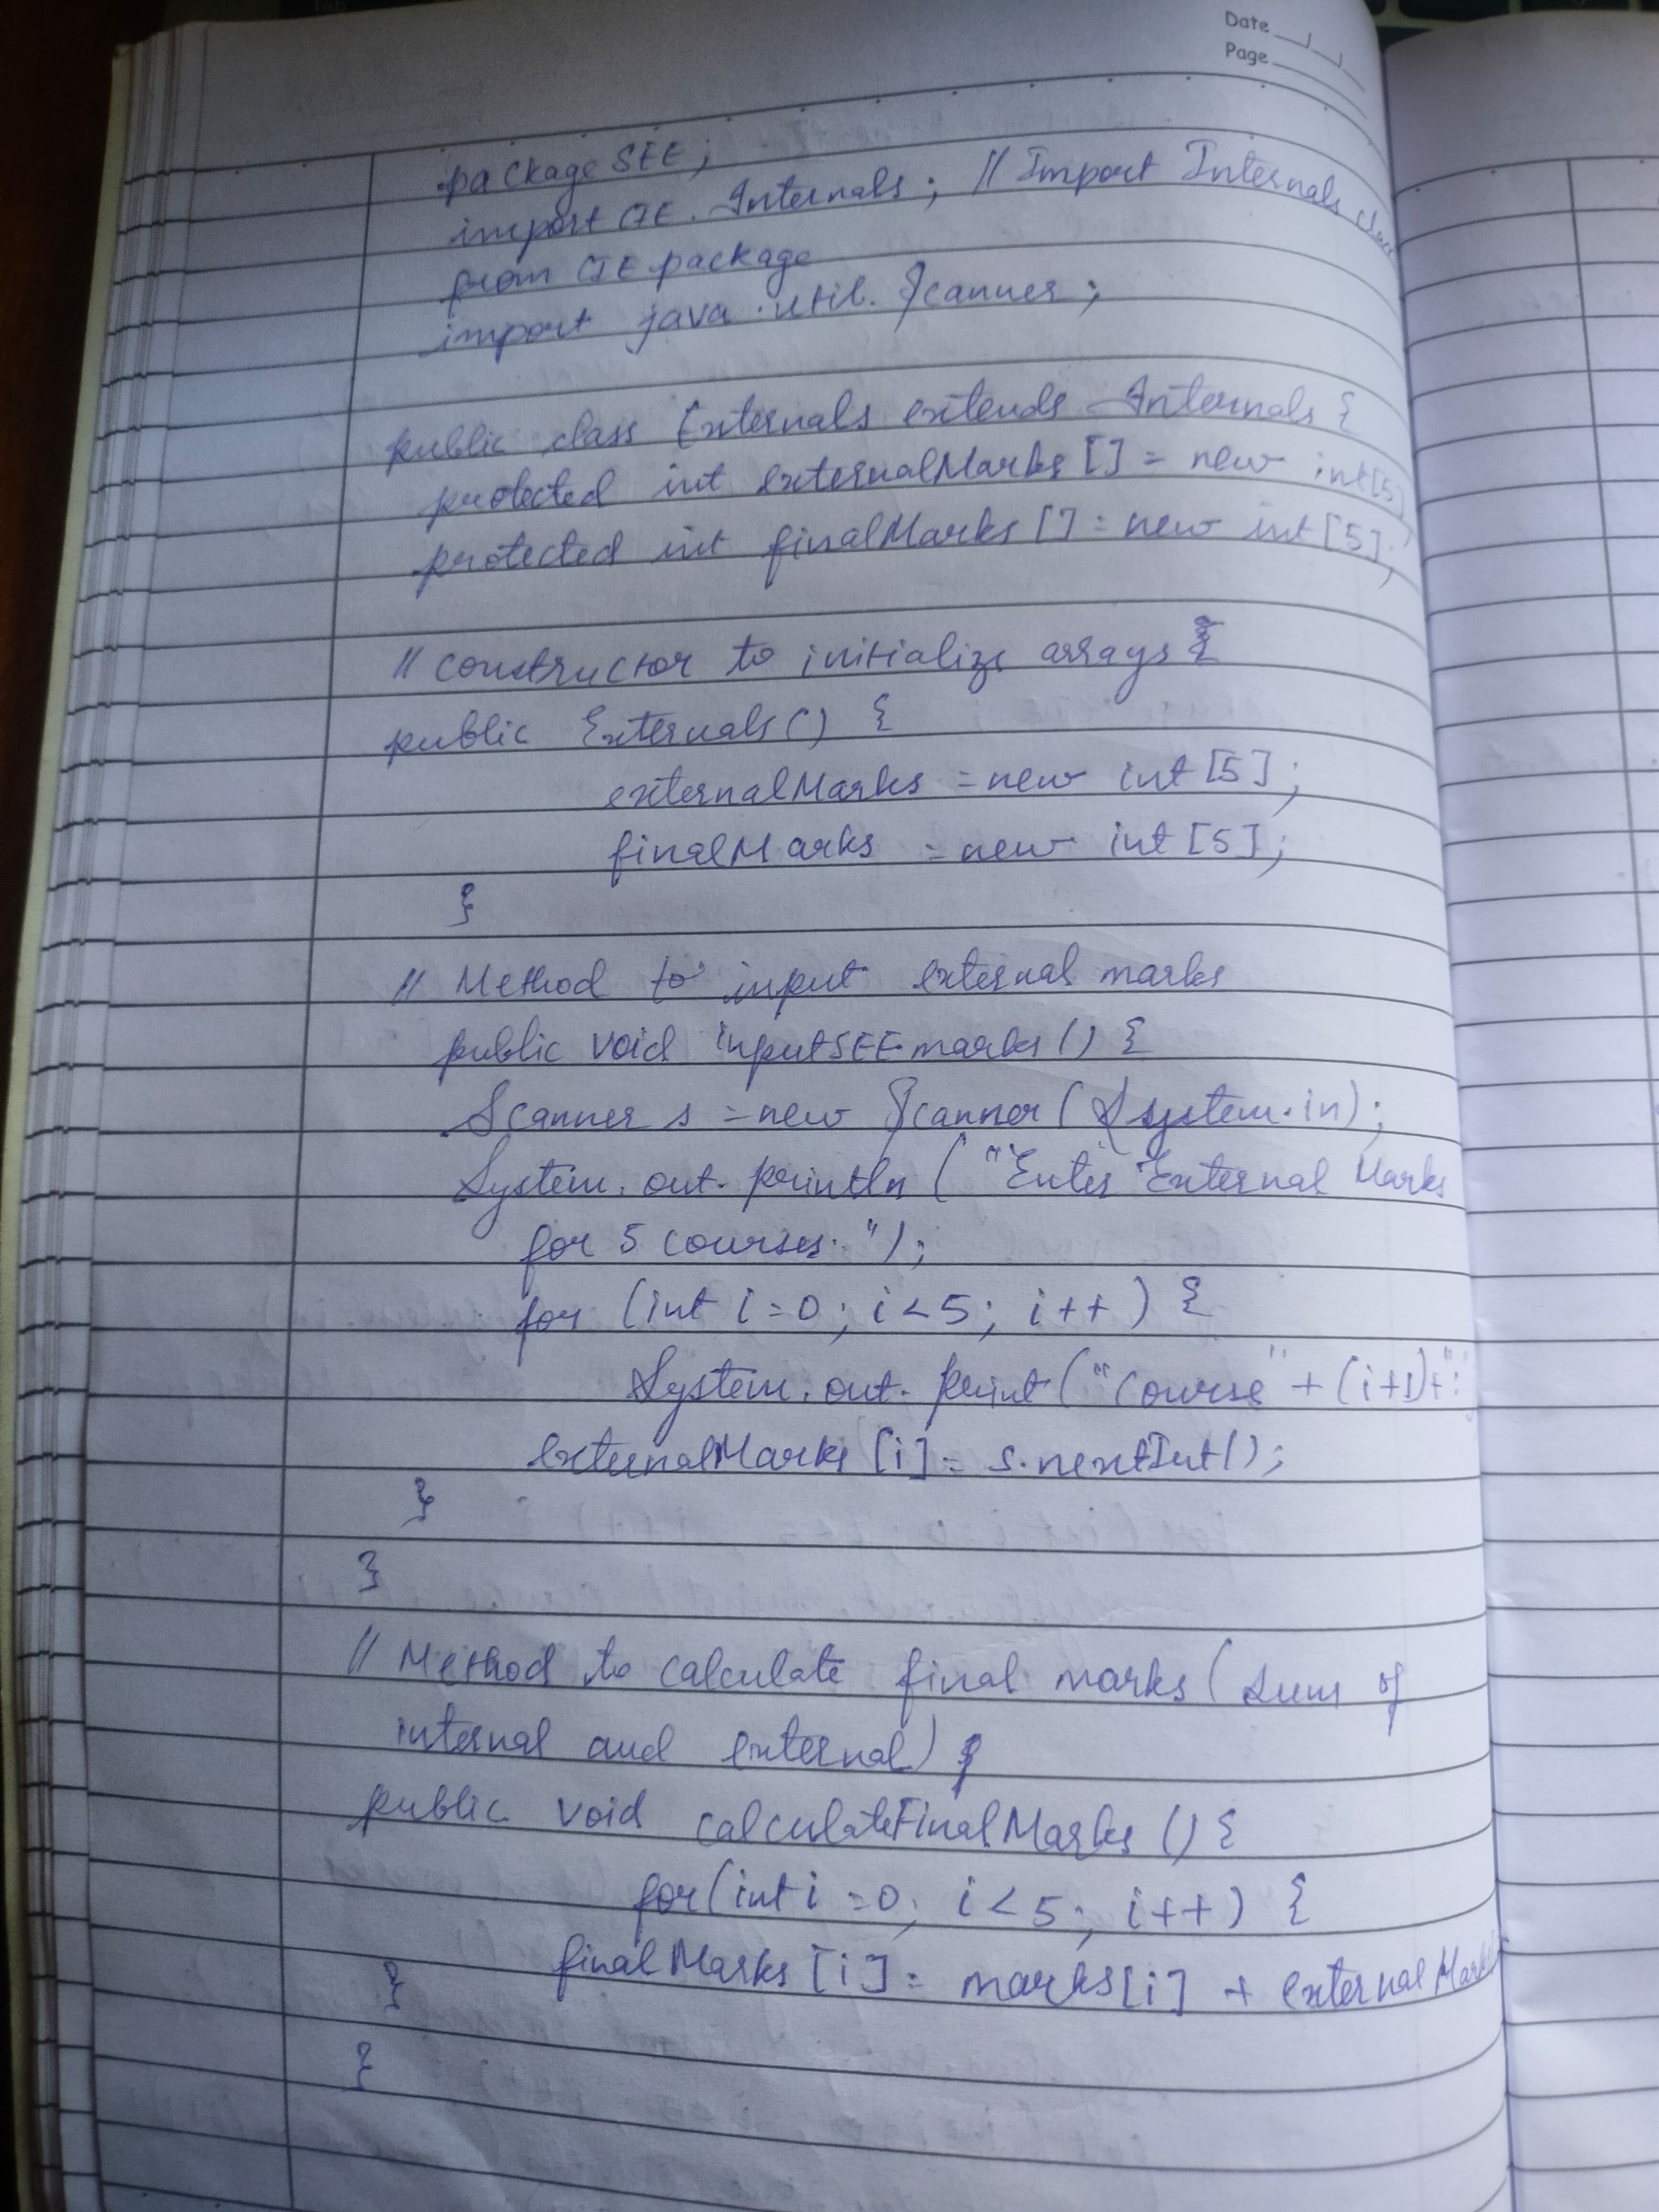 Date
Page
package SEE;
import CIE. Internals; // Import Internals class
from CIE package
import java.util.Scanner;
public class Externals extends Internals {
protected int externalMarks [] = new int[5]
protected int finalMarks [] = new int [5];
// constructor to initialize arrays
public Externals() {
externalMarks = new int [5];
finalMarks = new int [5];
}
// Method to input external marks
public void inputSEEmarks () {
Scanner s = new Scanner (System.in);
System.out.println ("Enter External Marks
for 5 courses: ");
for (int i=0; i<5; i++) {
System.out.print ("course" + (i+1)+":
externalMarks [i] = s.nextInt();
}
}
// Method to calculate final marks (sum of
internal and external)
public void calculateFinalMarks () {
for(int i =0; i<5; i++) {
finalMarks [i] = marks[i] + externalMarks
}
}